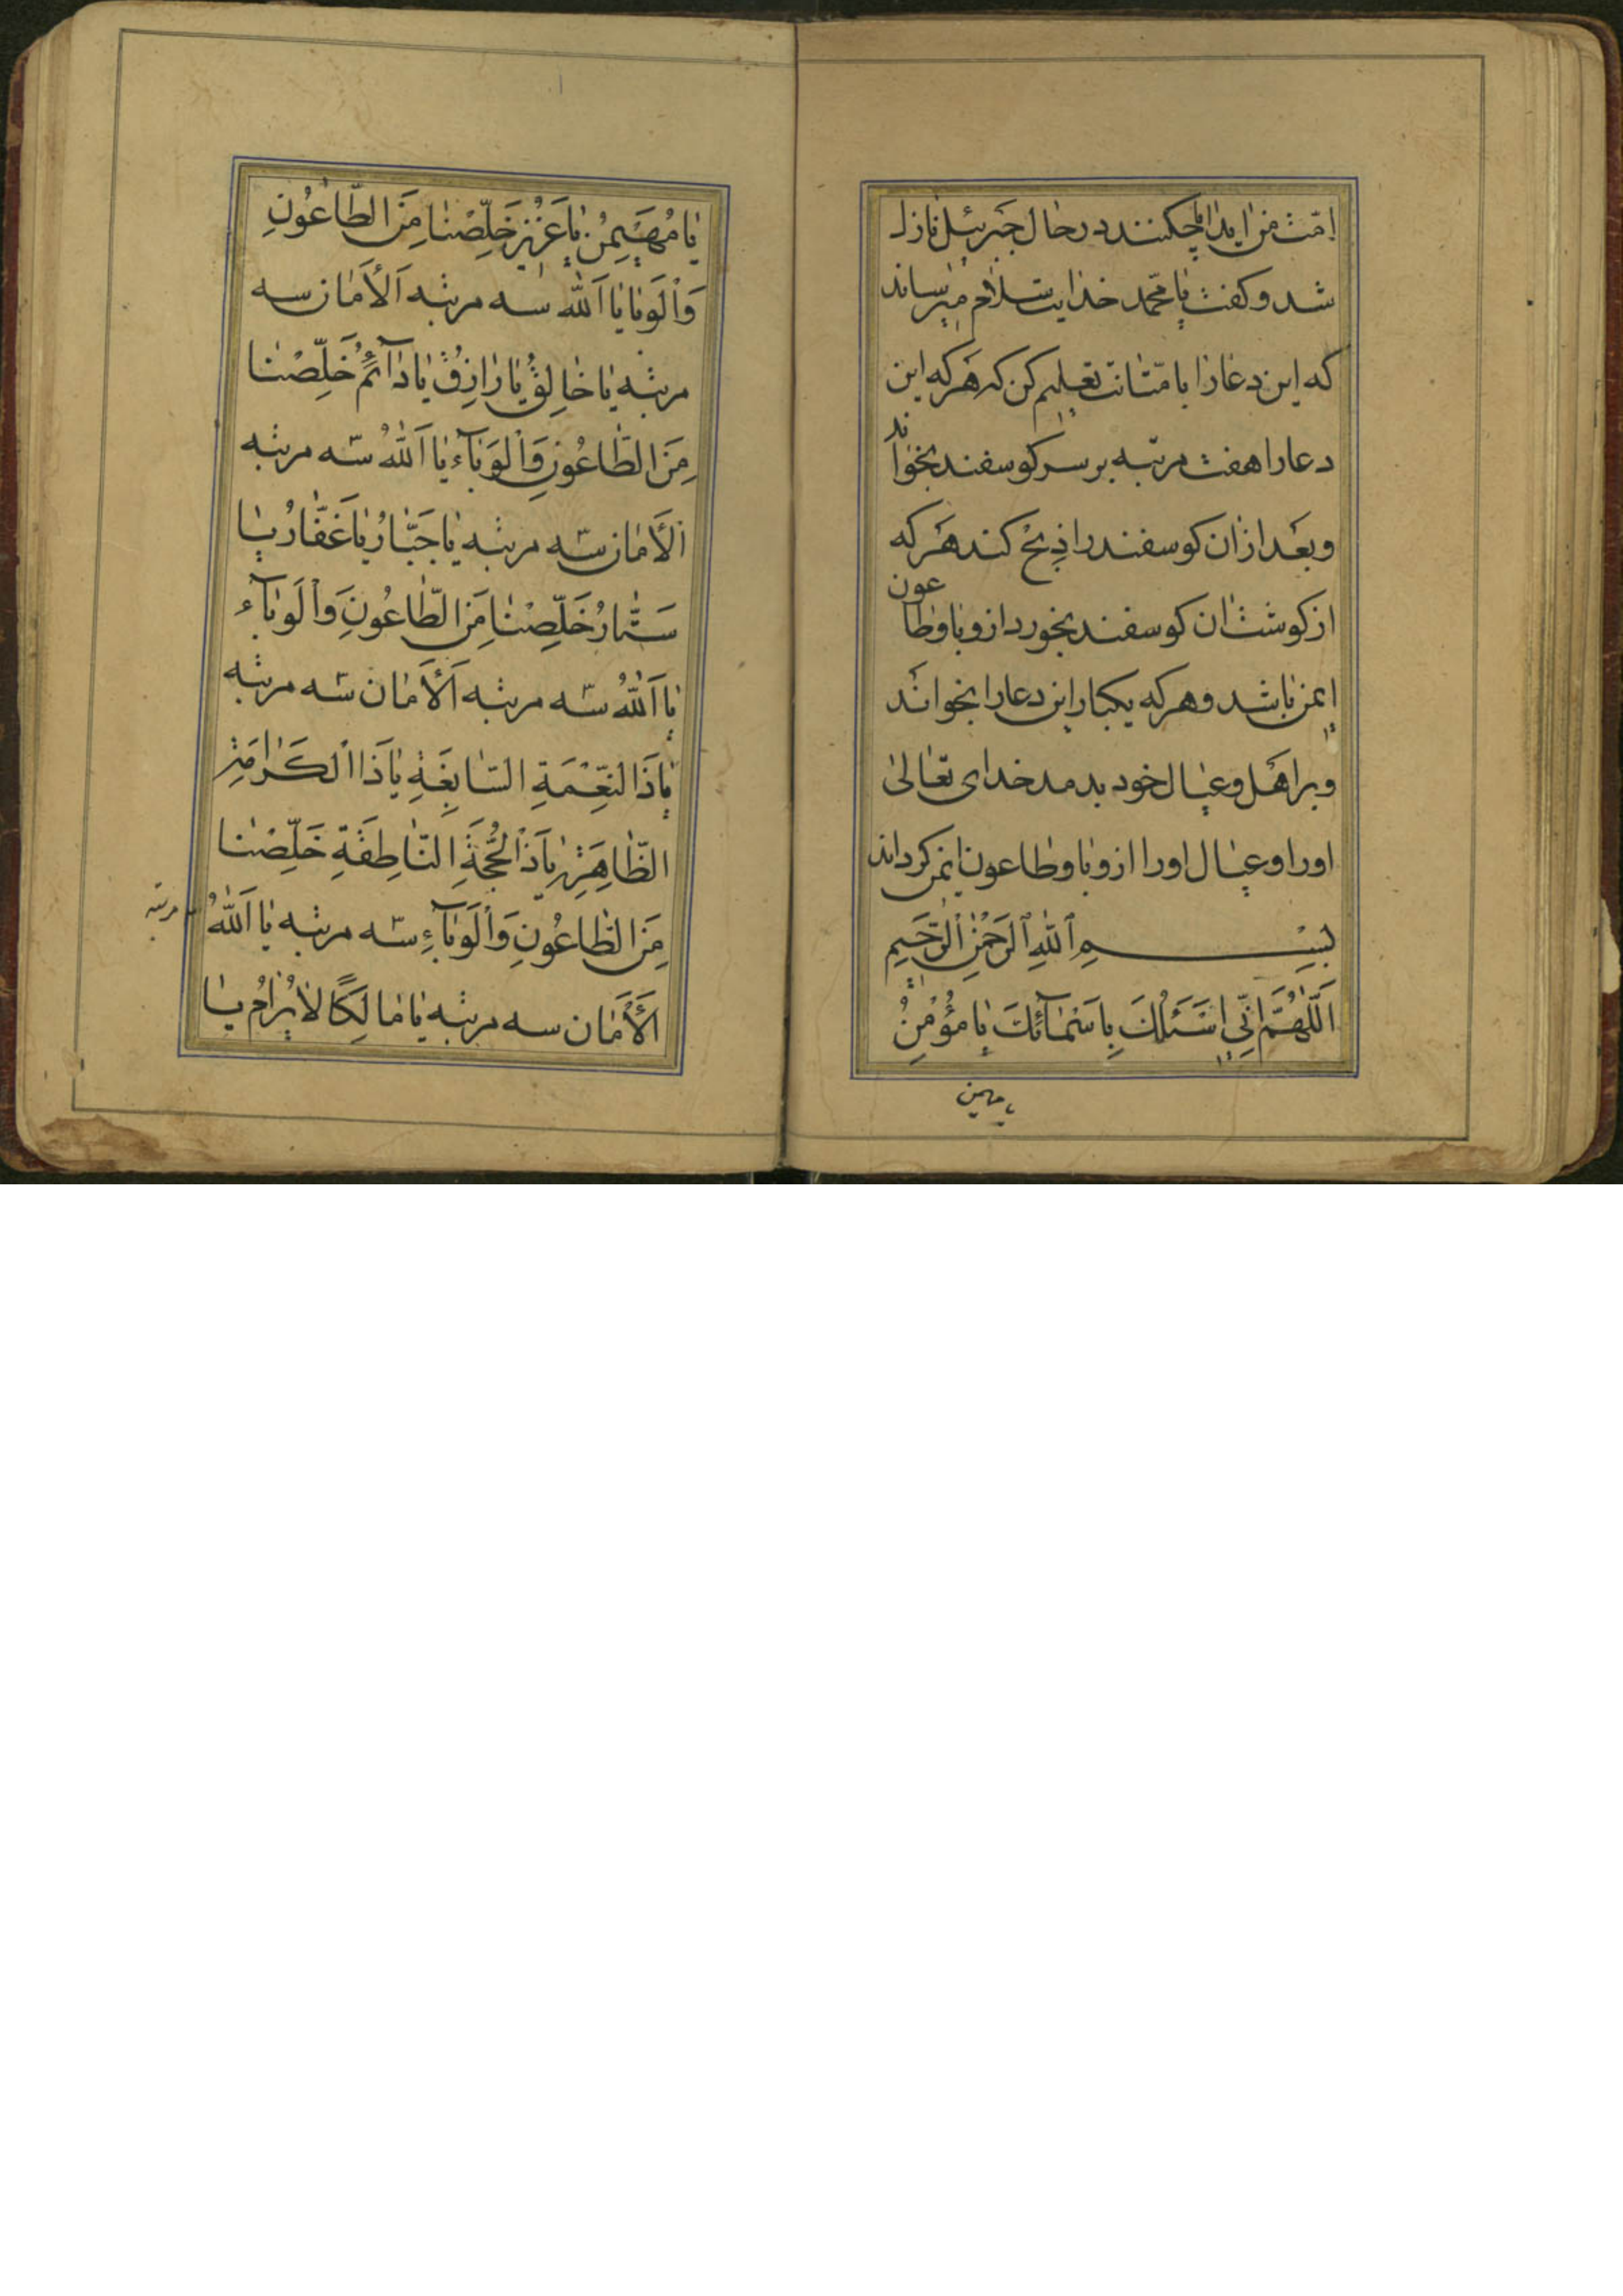 امّت من ایذا چکنند در حال جبرئیل نازل
شد و کفت یا محمّد خدایت سلام میرساند
که این دعا را بامّتانت تعلیم کن که هرکه این
دعا را هفت مرتبه بر سر کوسفند بخواند
و بعد از ان کوسفند را ذبح کند هرکه
از کوشت ان کوسفند بخورد از وبا و طاعون
ایمن باشد و هرکه یکبار این دعا را بخواند
و بر اهل و عیال خود بدمد خدای تعالی
او را و عیال او را از وبا و طاعون ایمن کرداند
بِسْمِ ٱللّٰهِ ٱلرَّحْمٰنِ ٱلرَّحِيمِ
اَللّٰهُمَّ اِنِّی اَسْئَلُكَ بِاَسْمَآئِكَ یَا مُؤْمِنُ
یا مهیمن
یَا مُهَیْمِنُ یَا عَزِیزُ خَلِّصْنَا مِنَ الطَّاعُونِ
وَالْوَبَا یَا اَللّٰه سه مرتبه اَلْاَمَان سه
مرتبه یَا خَالِقُ یَا رَازِقُ یَا دَآئِمُ خَلِّصْنَا
مِنَ الطَّاعُونِ وَالْوَبَآءِ یَا اَللّٰهُ سه مرتبه
اَلْاَمَان سه مرتبه یَا جَبَّارُ یَا غَفَّارُ یَا
سَتَّارُ خَلِّصْنَا مِنَ الطَّاعُونِ وَالْوَبَآءِ
یَا اَللّٰهُ سه مرتبه اَلْاَمَان سه مرتبه
یَا ذَا النِّعْمَةِ السَّابِغَةِ یَا ذَا الْكَرَامَةِ
الظَّاهِرَةِ یَا ذَا الْحُجَّةِ النَّاطِقَةِ خَلِّصْنَا
مِنَ الطَّاعُونِ وَالْوَبَآءِ سه مرتبه یَا اَللّٰهُ
سه مرتبه
اَلْاَمَان سه مرتبه یَا مَالِكًا لَا یُرَامُ یَا